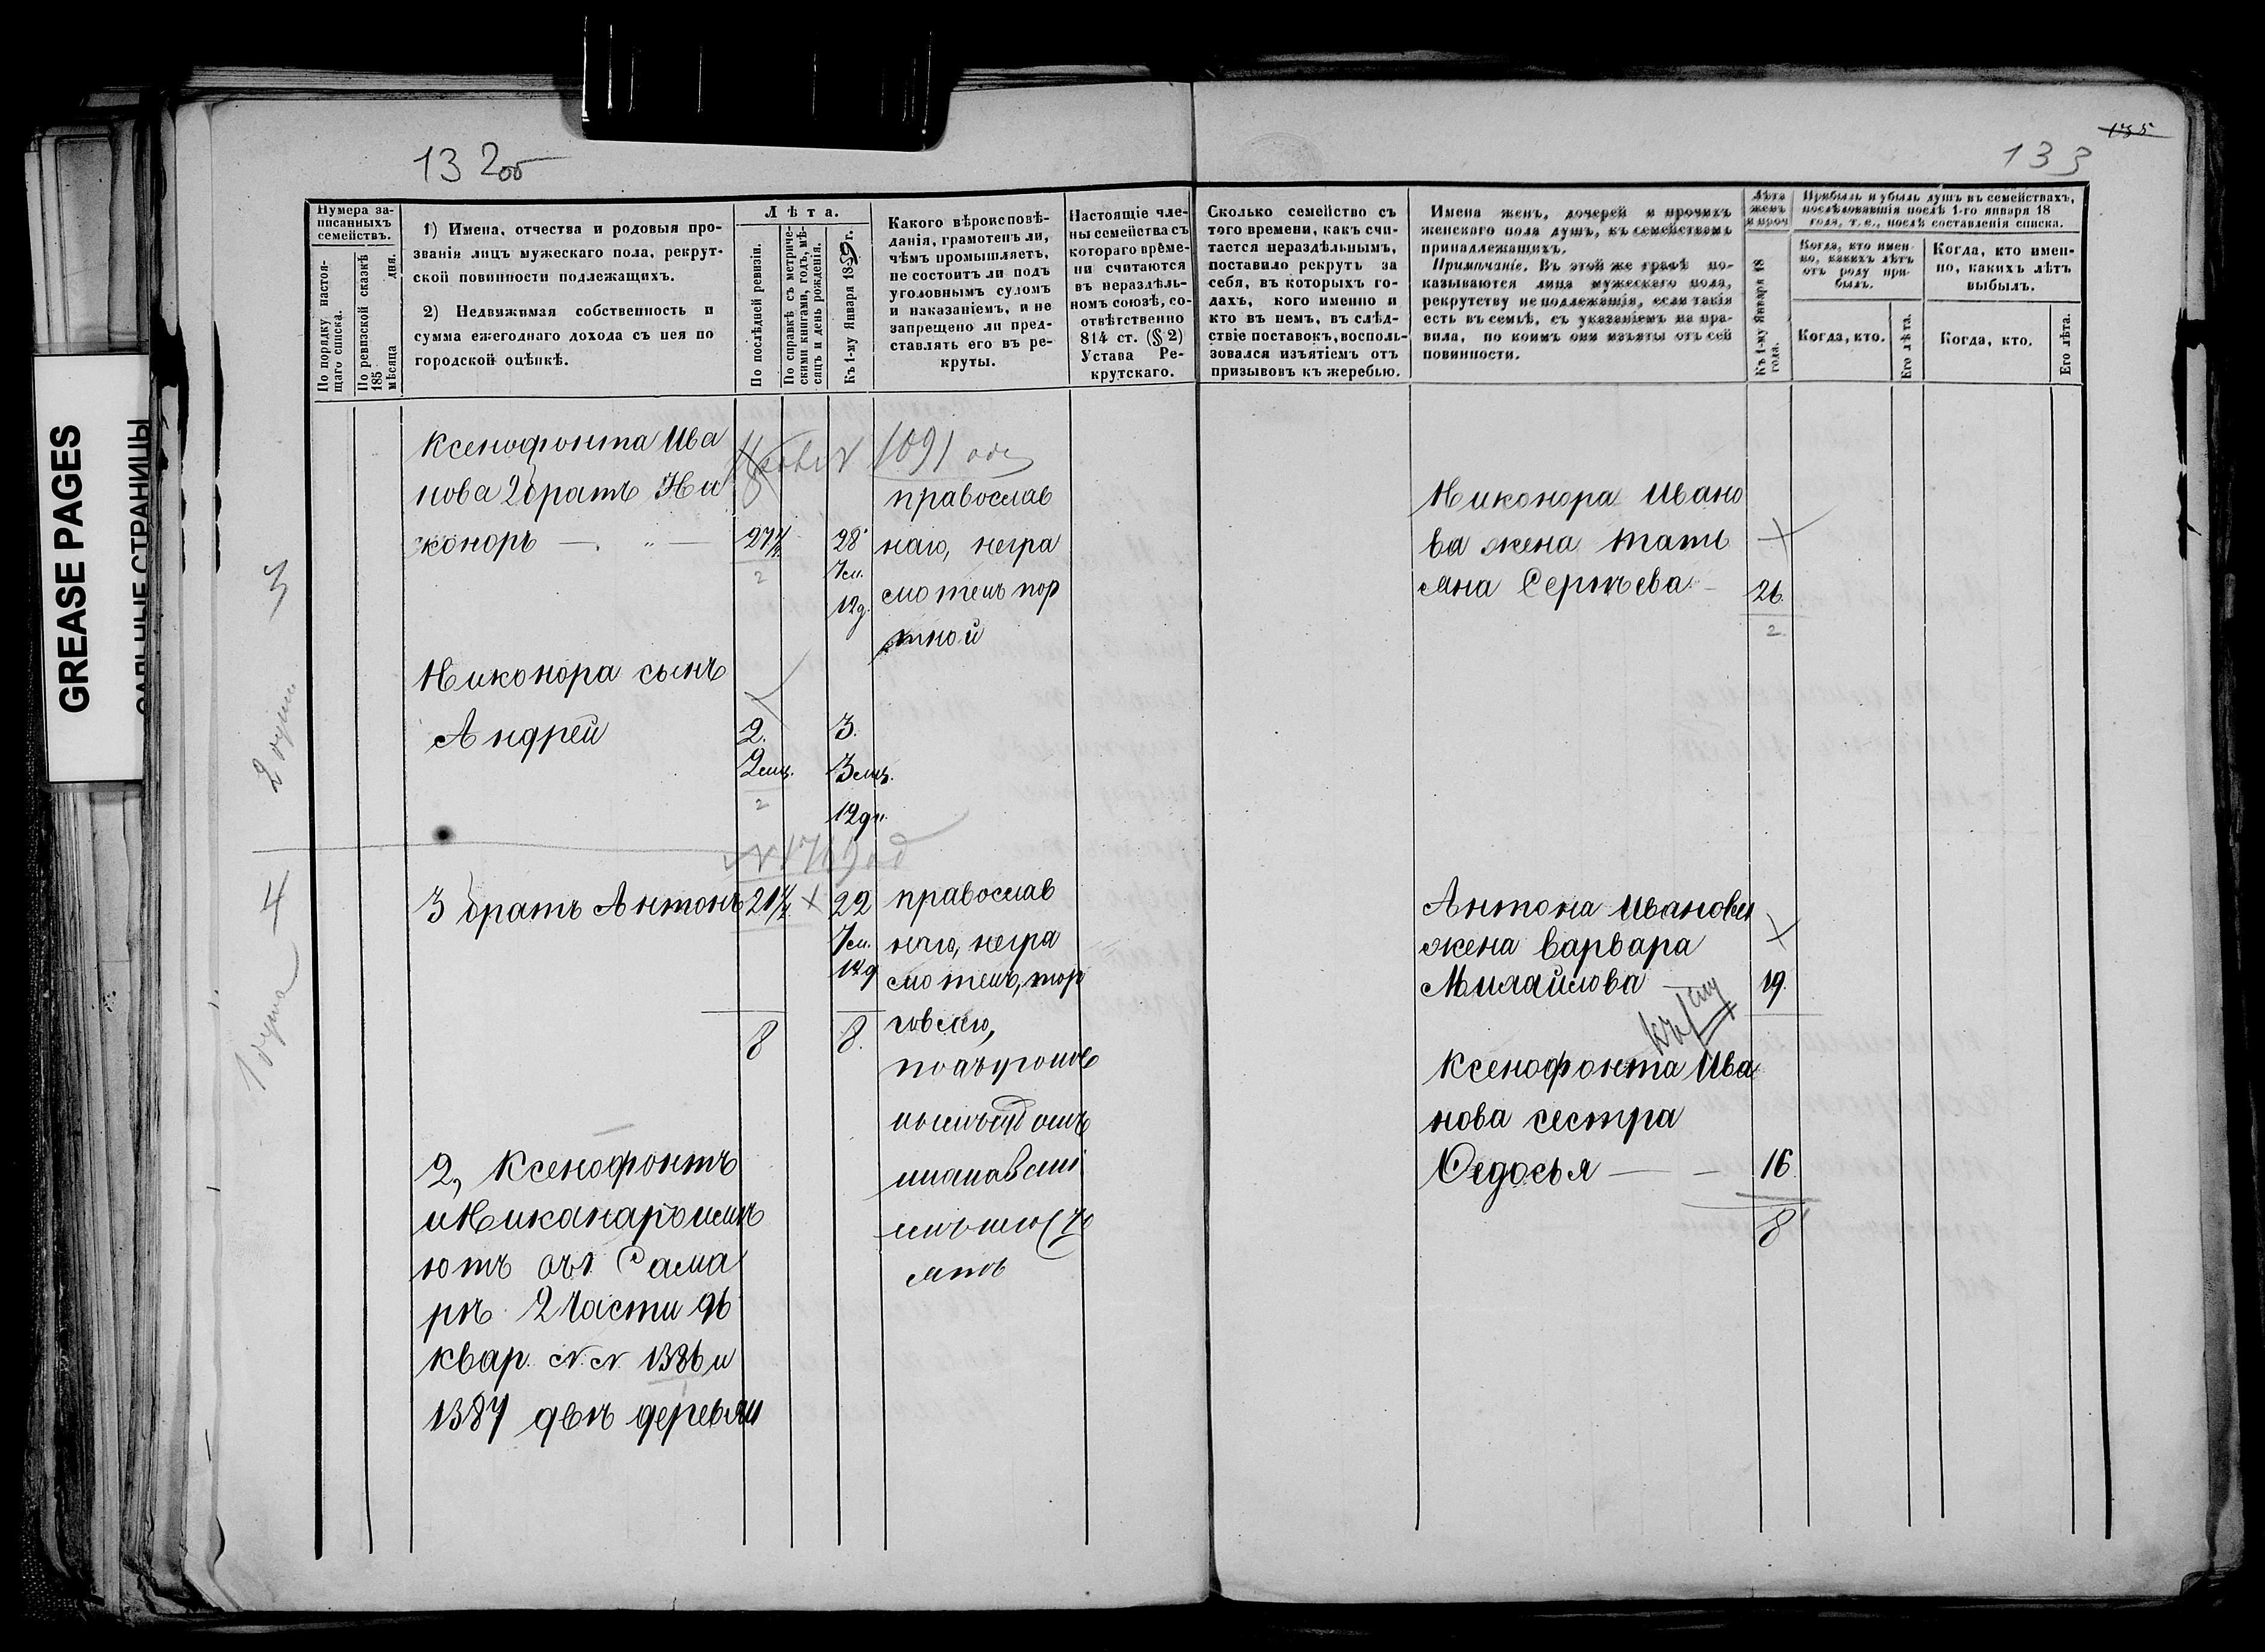 GREASE PAGES
САЛЬНЫЕ СТРАНИЦЫ
132об
133
135
Нумера записанныхъ семействъ.
По порядку настоящаго списка.
По ревизской сказкѣ 185 мѣсяца дня.
1) Имена, отчества и родовыя про-
званія лицъ мужескаго пола, рекрут-
ской повинности подлежащихъ.
2) Недвижимая собственность и
сумма ежегоднаго дохода съ нея по
городской оцѣнкѣ.
Лѣта.
По послѣдней ревизіи.
По справкѣ съ метриче-
скими книгами, годъ, мѣ-
сяцъ и день рожденія.
Къ 1-му Января 1859 г.
Какого вѣроисповѣ-
данія, грамотенъ ли,
чѣмъ промышляетъ,
не состоитъ ли подъ
уголовнымъ судомъ
и наказаніемъ, и не
запрещено ли пред-
ставлять его въ ре-
круты.
Настоящіе чле-
ны семейства съ
котораго време-
ни считаются
въ нераздѣль-
номъ союзѣ, со-
отвѣтственно
814 ст. (§ 2)
Устава Ре-
крутскаго.
Сколько семейство съ
того времени, какъ счи-
тается нераздѣльнымъ,
поставило рекрутъ за
себя, въ которыхъ го-
дахъ, кого именно и
кто въ немъ, въ слѣд-
ствіе поставокъ, восполь-
зовался изъятіемъ отъ
призывовъ къ жеребью.
Имена женъ, дочерей и прочихъ
женскаго пола душъ, къ семействамъ
принадлежащихъ.
Примѣчаніе. Въ этой же графѣ по-
казываются лица мужескаго пола,
рекрутству не подлежащія, если такія
есть въ семьѣ, съ указаніемъ на пра-
вила, по коимъ они изъяты отъ сей
повинности.
Лѣта
женъ
и проч
Къ 1-му Января 18 года.
Прибыль и убыль душъ въ семействахъ,
послѣдовавшія послѣ 1-го января 18
года, т. е., послѣ составленія списка.
Когда, кто имен-
но, какихъ лѣтъ
отъ роду при-
былъ.
Когда, кто имен-
но, какихъ лѣтъ
выбылъ.
Когда, кто.
Его лѣта.
Когда, кто.
Его лѣта.
Ксенофонта Ива
нова 2 братъ Ни
коноръ
27½
2
28
7 м.
12 д.
№ 1091
православ
наго, негра
мотенъ пор
тной
Никонора Ивано
ва жена Тать
яна Сергѣева
26.
2.
Никонора сынъ
Андрей
2.
2 мц.
2
3.
3 мц.
12 дн.
3
2 души
4
1 душа
3 братъ Антонъ
21½
22
7 м.
12 д
православ
наго, негра
мотенъ, тор
говлею,
8
8.
Антона Иванова
жена Варвара
Михайлова
19.
Ксенофонта Ива
нова сестра
Ѳедосья
16.
8
2, Ксенофонтъ
и Никаноръ имѣ
ютъ въ г. Сама
рѣ 2 части 96
квар. №№ 1386 и
1387 двѣ деревян